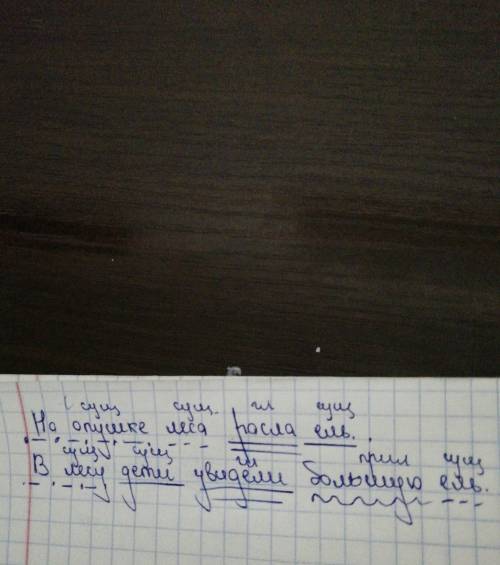 сущ сущ. гл сущ
На опушке леса расла ель.
сущ сущ гл прил сущ
В лесу дети увидели большую ель.